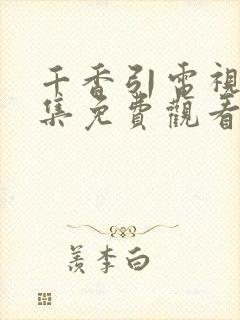 千香引電視
集免費觀看
羨李白